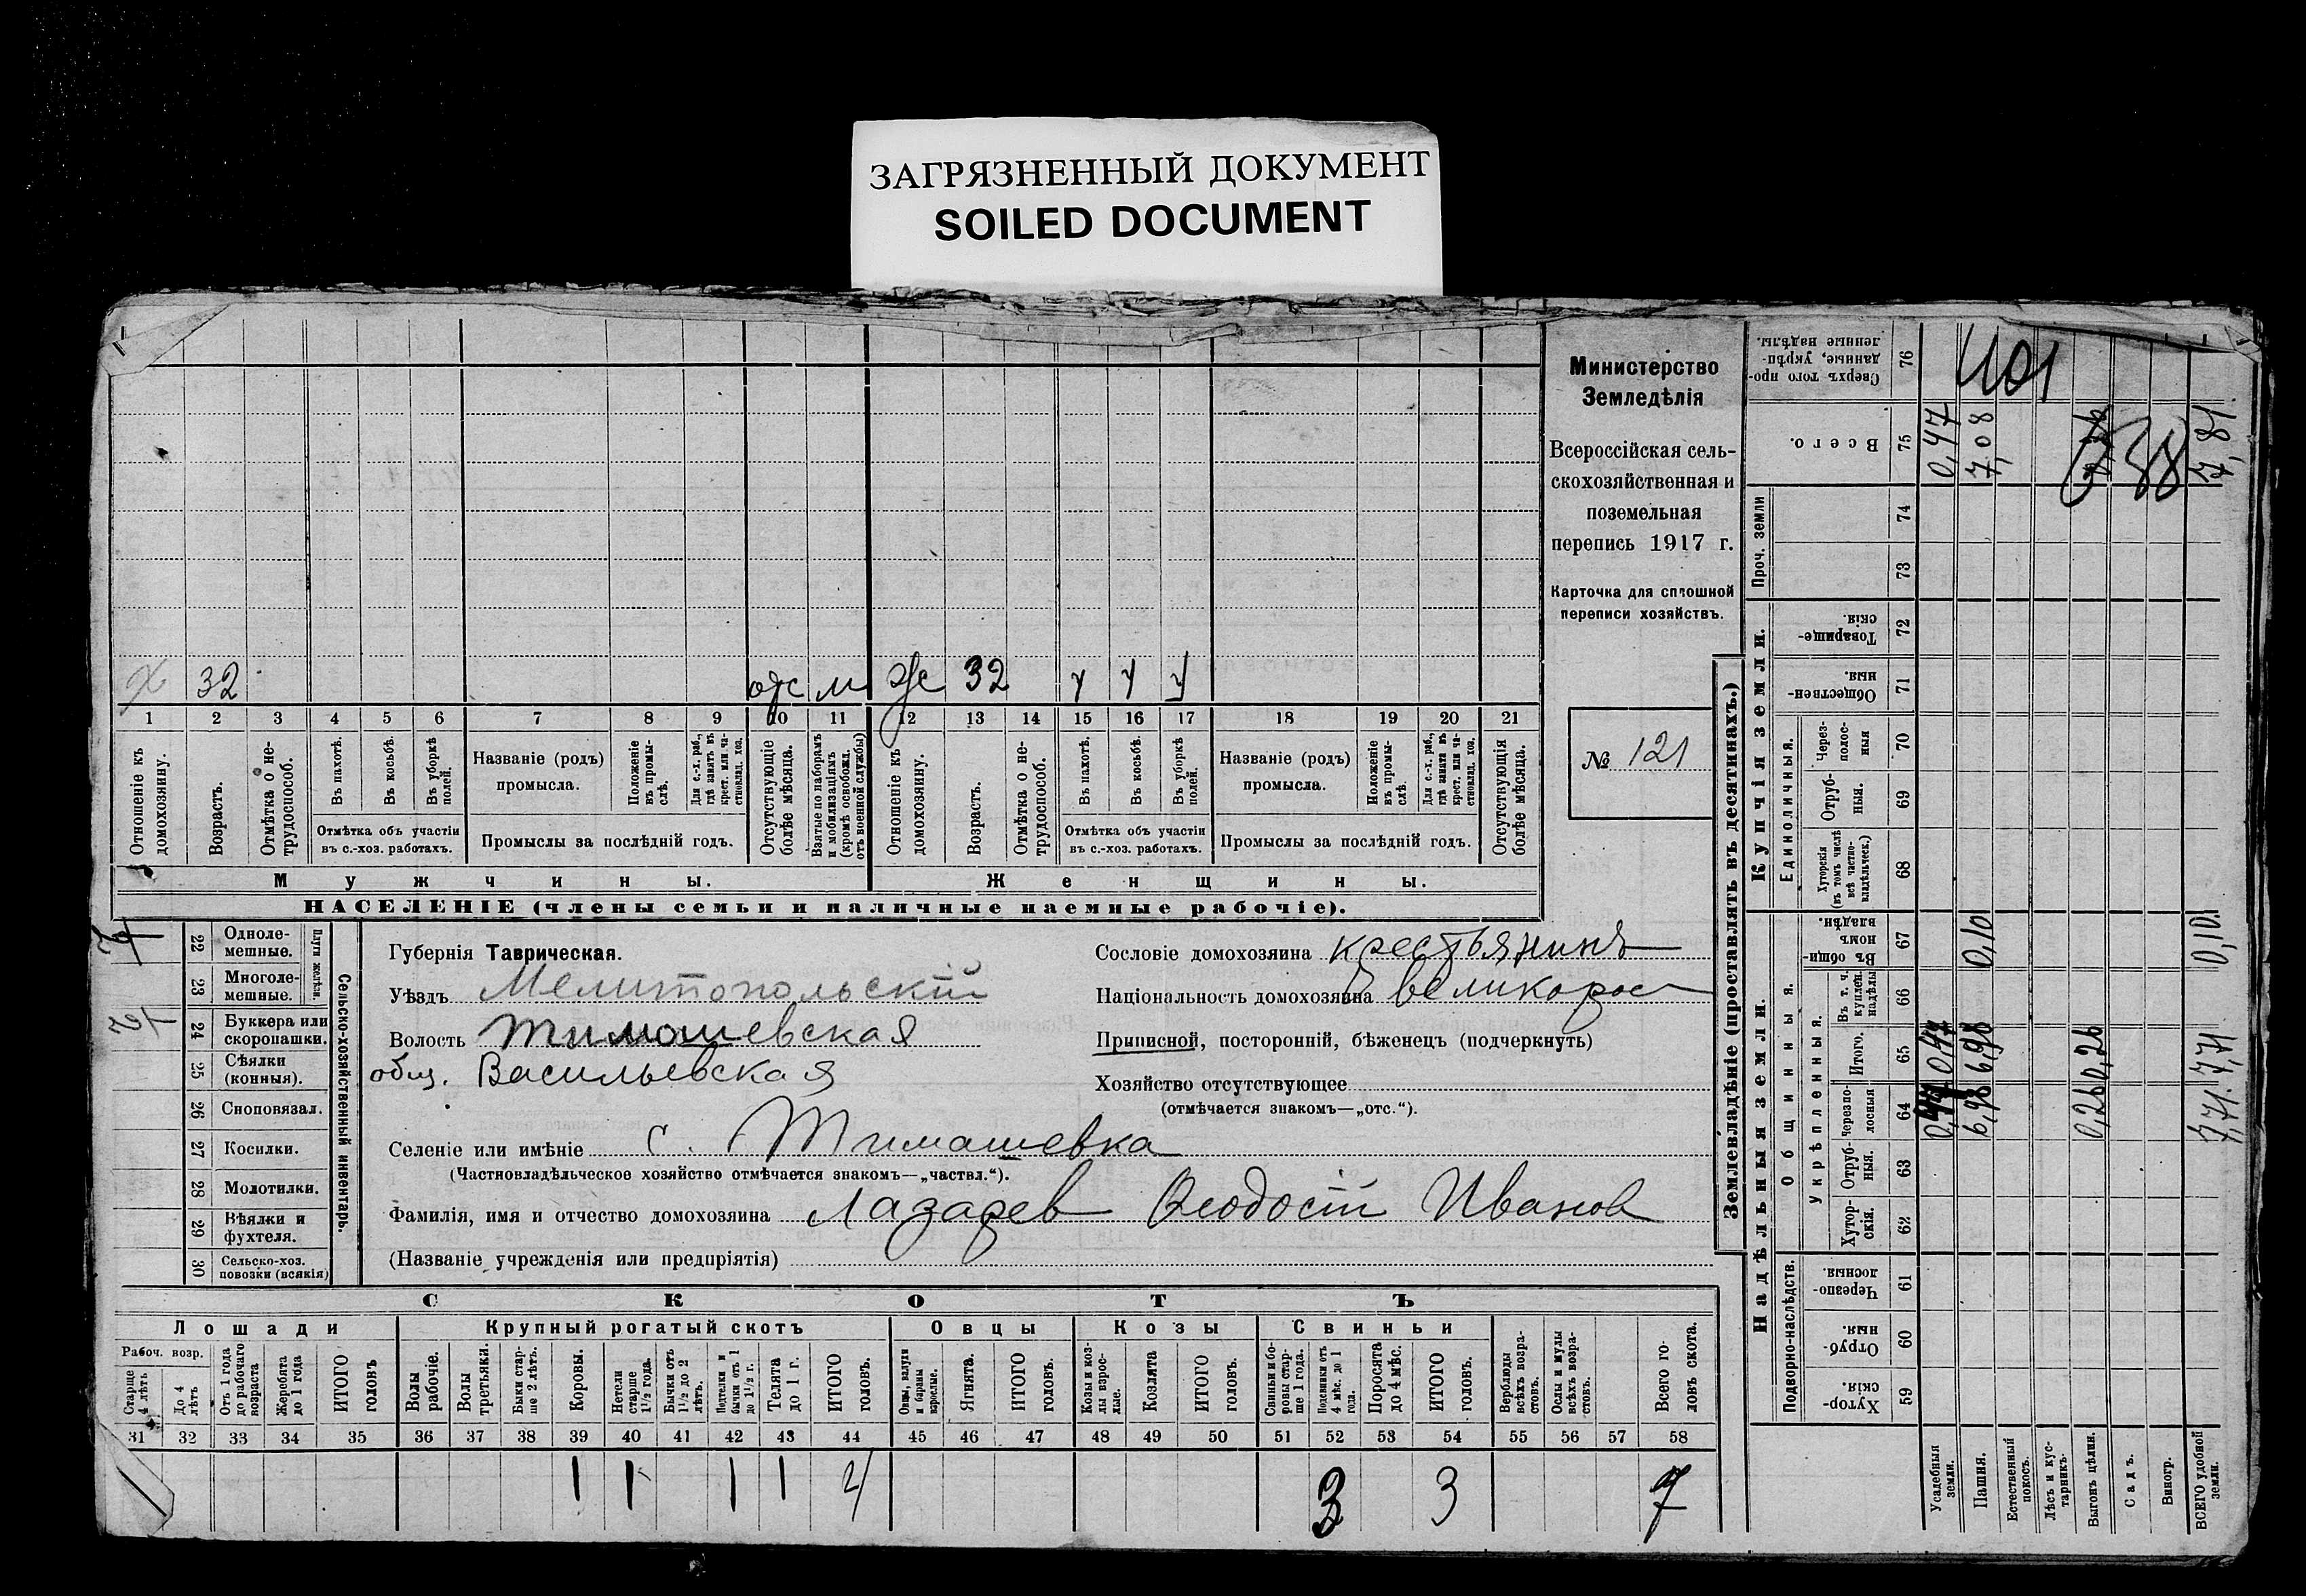 ЗАГРЯЗНЕННЫЙ ДОКУМЕНТ
SOILED DOCUMENT
Министерство
Земледѣлія
Всероссійская сель-
скохозяйственная и
поземельная
перепись 1917 г.
Карточка для сплошной
переписи хозяйствъ.
№ 121
х 32 отс м ж 32 у у у
1 2 3 4 5 6 7 8 9 10 11 12 13 14 15 16 17 18 19 20 21
Отношеніе къ домохозяину.
Возрастъ.
Отмѣтка о не-трудоспособ.
Въ пахотѣ.
Въ косьбѣ.
Въ уборкѣ полей.
Отмѣтка объ участіи
въ с.-хоз. работахъ.
Названіе (родъ)
промысла.
Положеніе въ промы-слѣ.
Для с.-х. раб., гдѣ занятъ въ крест. или ча-стновлад. хоз.
Промыслы за послѣдній годъ.
Отсутствующіе болѣе мѣсяца.
Взятые по наборамъ и мобилизаціямъ (кромѣ освобожд. отъ военной службы)
Отношеніе къ домохозяину.
Возрастъ.
Отмѣтка о не-трудоспособ.
Въ пахотѣ.
Въ косьбѣ.
Въ уборкѣ полей.
Отмѣтка объ участіи
въ с.-хоз. работахъ.
Названіе (родъ)
промысла.
Положеніе въ промы-слѣ.
Для с.-х. раб., гдѣ занята въ крест. или ча-стновлад. хоз.
Промыслы за послѣдній годъ.
Отсутствующія болѣе мѣсяца.
Мужчины. Женщины.
НАСЕЛЕНІЕ (члены семьи и наличные наемные рабочіе).
22 Одноле-мешные.
23 Многоле-мешные.
Плуги желѣзн.
24 Буккера или скоропашки.
25 Сѣялки (конныя).
26 Сноповязал.
27 Косилки.
28 Молотилки.
29 Вѣялки и фухтеля.
30 Сельско-хоз. повозки (всякія)
Сельско-хозяйственный инвентарь.
Губернія Таврическая.
Уѣздъ Мелитопольскій
Волость Тимошевская
общ. Васильевская
Селеніе или имѣніе с. Тимашевка
(Частновладѣльческое хозяйство отмѣчается знакомъ—„частвл.“).
Фамилія, имя и отчество домохозяина Лазарев Феодосій Иванов
(Названіе учрежденія или предпріятія)
Сословіе домохозяина крестьянинъ
Національность домохозяина великорос
Приписной, посторонній, бѣженецъ (подчеркнуть)
Хозяйство отсутствующее
(отмѣчается знакомъ—„отс.“).
СКОТЪ
Лошади Крупный рогатый скотъ Овцы Козы Свиньи
Рабоч. возр.
Старше 4 лѣтъ
До 4 лѣтъ
Отъ 1 года до рабочаго возраста
Жеребята до 1 года
ИТОГО головъ
Волы рабочіе.
Волы третьяки.
Быки стар-ше 2 лѣтъ.
Коровы.
Нетели старше 1½ года.
Бычки отъ 1½ до 2 лѣтъ.
Подтелки и бычки отъ 1 до 1½ г.
Телята до 1 г.
ИТОГО головъ.
Овцы, валухи и бараны взрослые.
Ягнята.
ИТОГО головъ.
Козы и коз-лы взрос-лые.
Козлята
ИТОГО головъ.
Свиньи и бо-ровы стар-ше 1 года.
Подсвинки отъ 4 мѣс. до 1 года.
Поросята до 4 мѣс.
ИТОГО головъ.
Верблюды всѣхъ возра-стовъ.
Ослы и мулы всѣхъ возра-стовъ.
Всего го-ловъ скота.
31 32 33 34 35 36 37 38 39 40 41 42 43 44 45 46 47 48 49 50 51 52 53 54 55 56 57 58
1 1 1 1 4 3 3 7
Землевладѣніе (проставлять въ десятинахъ.)
Надѣльныя земли.
Купчія земли.
Проч. земли
Подворно-наслѣдств.
Общинныя.
Укрѣпленныя.
Единоличныя.
Хутор-скія. 59
Отруб-ныя. 60
Черезпо-лосныя. 61
Хутор-скія. 62
Отруб-ныя. 63
Черезпо-лосныя 64
Итого. 65
Въ т. ч. куплен. надѣлы 66
Въ общин-номъ владѣн. 67
Хуторскія (въ томъ числѣ всѣ частно-владѣльческ.) 68
Отруб-ныя. 69
Через-полос-ныя 70
Обществен-ныя. 71
Товарище-скія. 72
73
74
Всего. 75
Сверхъ того про-данные, укрѣп-ленные надѣлы. 76
Усадебныя земли. 0,47 0,47 0,47
Пашня. 6,98 6,98 0,10 7,08
Естественный покосъ.
Лѣсъ и кус-тарникъ.
Выгонъ цѣлин. 0,26 0,26
Садъ.
Виногр.
ВСЕГО удобной земли. 7,71 7,71 0,10 7,81
401